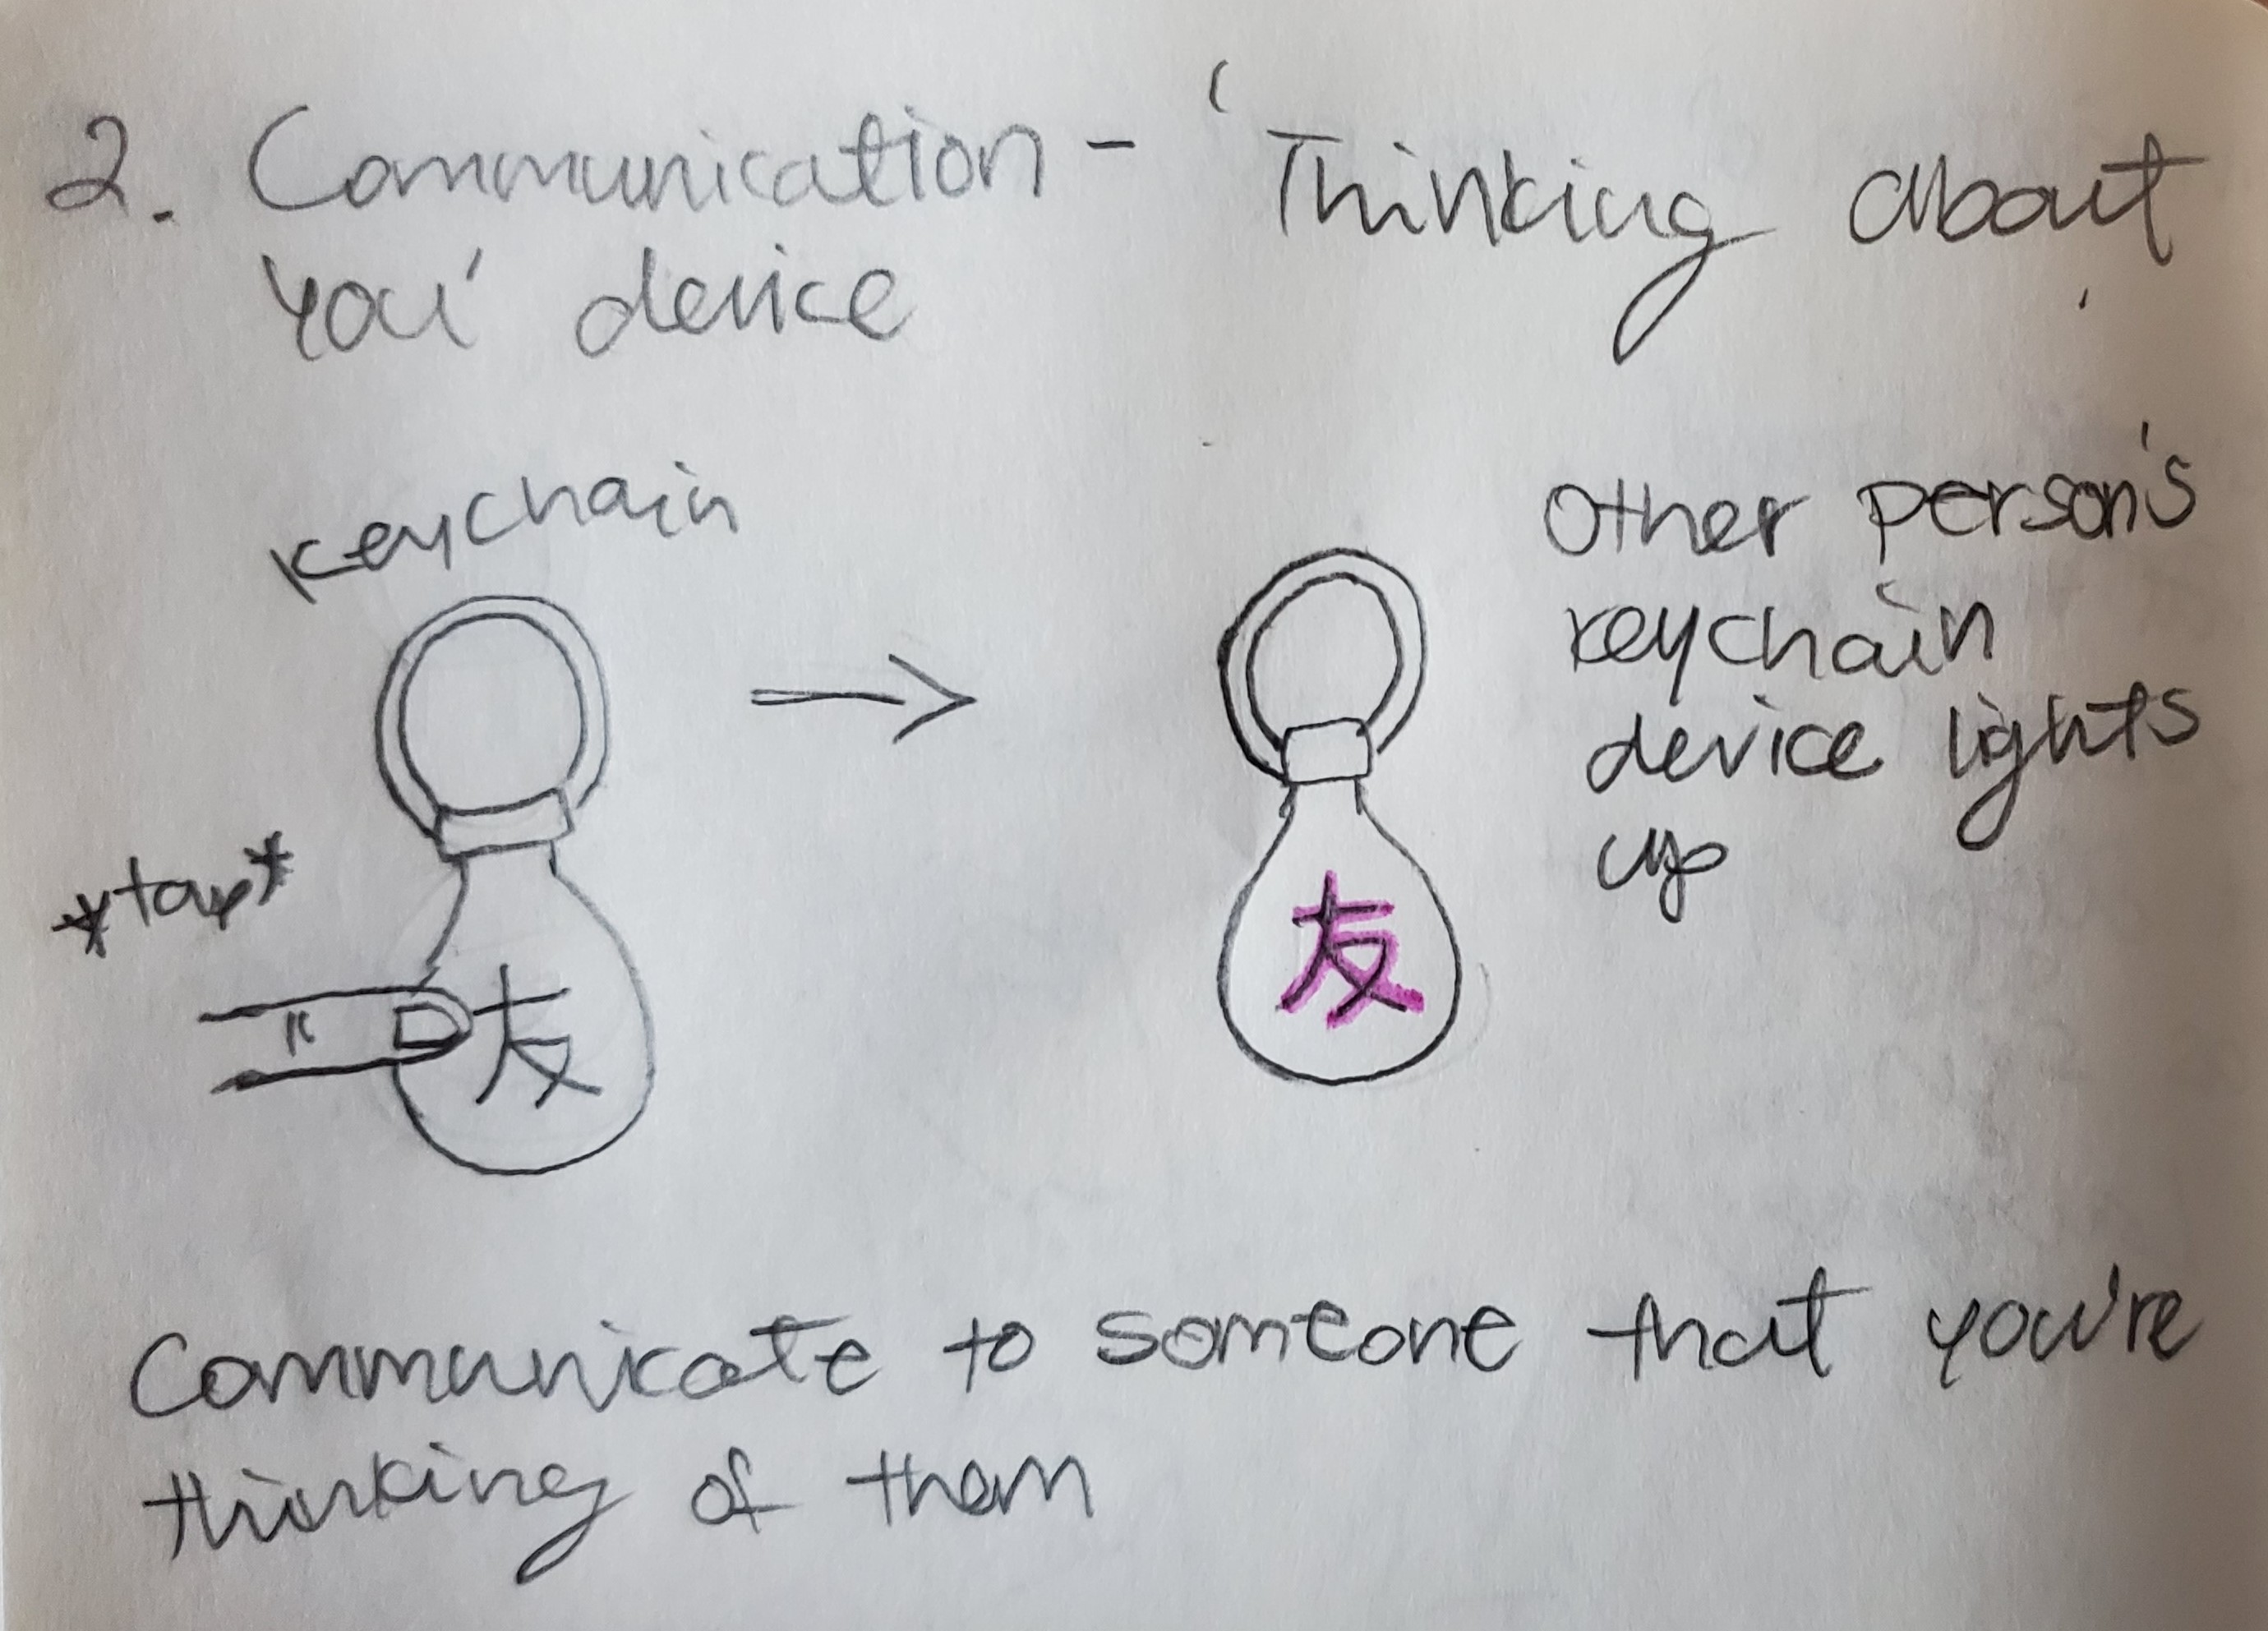 2. Communication - 'Thinking about
you' device
keychain
*tap*
友
Other person's
keychain
device lights
up
友
Communicate to someone that you're
thinking of them